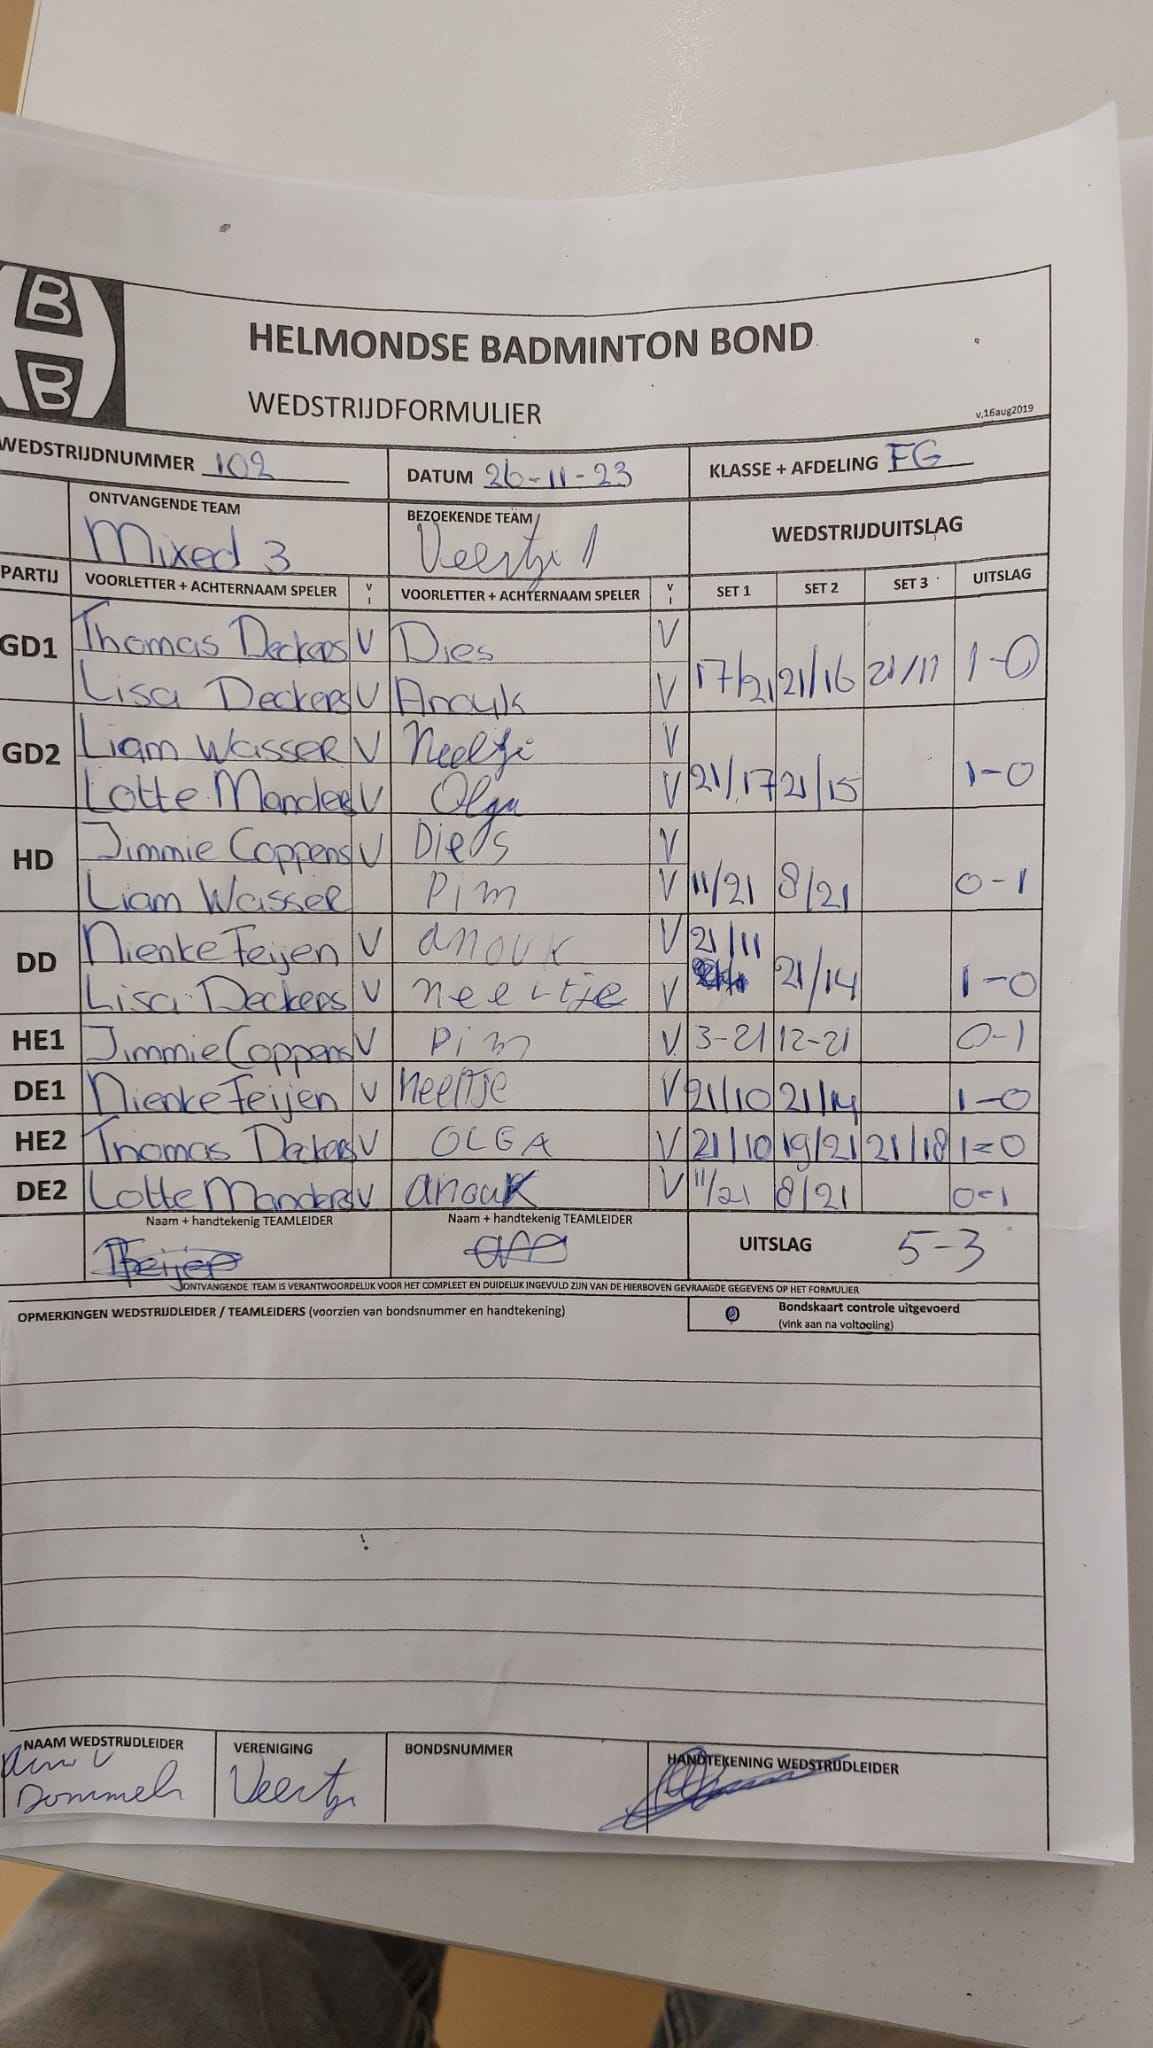 B
B
HELMONDSE BADMINTON BOND
WEDSTRIJDFORMULIER
v,16aug2019
WEDSTRIJDNUMMER 102 DATUM 26-11-23 KLASSE + AFDELING FG
ONTVANGENDE TEAM BEZOEKENDE TEAM WEDSTRIJDUITSLAG
Mixed 3 Veertje 1
PARTIJ VOORLETTER + ACHTERNAAM SPELER V I VOORLETTER + ACHTERNAAM SPELER V I SET 1 SET 2 SET 3 UITSLAG
GD1 Thomas Deckers V Dies V 17/21 21/16 21/11 1-0
Lisa Deckers V Anouk V
GD2 Liam Wasser V Neeltje V 21/17 21/15 1-0
Lotte Manders V Olga V
HD Jimmie Coppens V Dies V 11/21 8/21 0-1
Liam Wasser Pim V
DD Nienke Feijen V anouk V 21/11 21/14 1-0
Lisa Deckers V neeltje V
HE1 Jimmie Coppens V Pim V 3-21 12-21 0-1
DE1 Nienke Feijen V neeltje V 21/10 21/14 1-0
HE2 Thomas Deckers V OLGA V 21/10 19/21 21/18 1-0
DE2 Lotte Manders V anouk V 11/21 8/21 0-1
Naam + handtekenig TEAMLEIDER Naam + handtekenig TEAMLEIDER UITSLAG 5-3
ONTVANGENDE TEAM IS VERANTWOORDELIJK VOOR HET COMPLEET EN DUIDELIJK INGEVULD ZIJN VAN DE HIERBOVEN GEVRAAGDE GEGEVENS OP HET FORMULIER
OPMERKINGEN WEDSTRIJDLEIDER / TEAMLEIDERS (voorzien van bondsnummer en handtekening) Bondskaart controle uitgevoerd
(vink aan na voltooiing)
NAAM WEDSTRIJDLEIDER VERENIGING BONDSNUMMER HANDTEKENING WEDSTRIJDLEIDER
Dommels Veertje